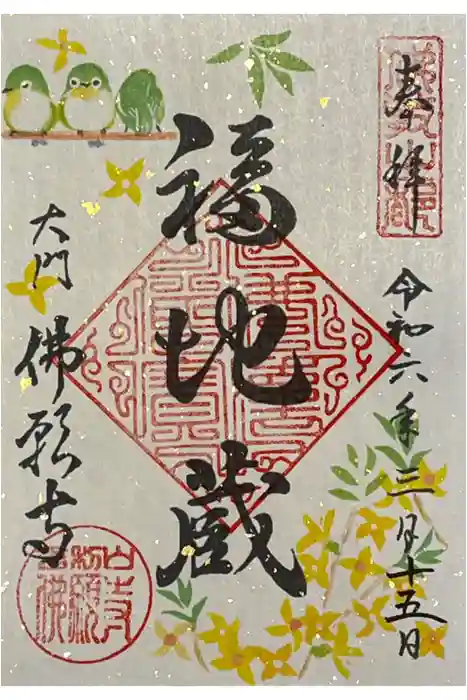 奉拝
令和六年三月十五日
福地蔵
大門
佛願寺